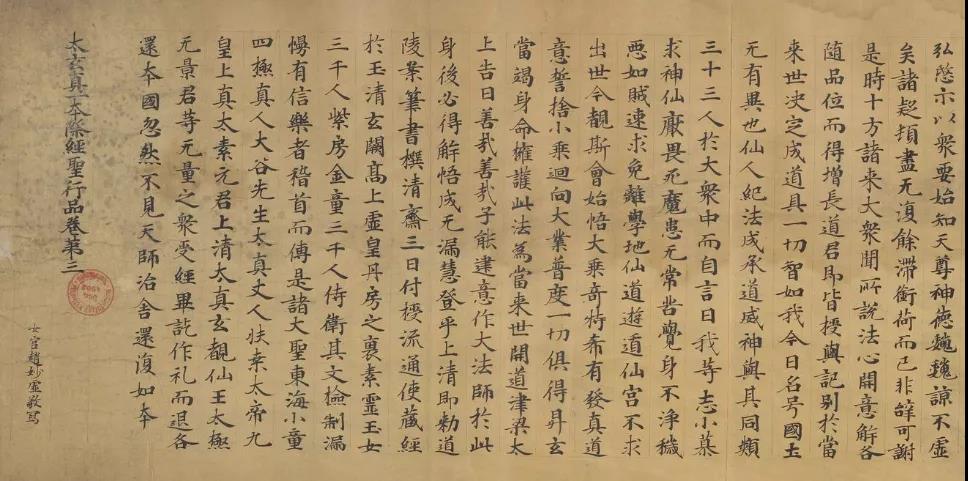 弘慈示以衆要始知天尊神德巍巍諒不虛
矣諸疑頓盡无復餘滯銜荷而已非辝可謝
是時十方諸来大衆聞所說法心開意解各
隨品位而得增長道君即皆授與記别於當
来世决定成道具一切智如我今日名号國土
无有異也仙人紀法成承道威神與其同類
三十三人於大衆中而自言曰我等志小慕
求神仙厭畏死魔患无常苦覺身不淨穢
惡如賊速求免離學地仙道遊道仙宮不求
出世今覩斯會始悟大乘奇特希有發真道
意誓捨小乘迴向大業普度一切俱得昇玄
當竭身命擁護此法為當来世開道津梁太
上告曰善哉善哉子能建意作大法師於此
身後必得解悟成无漏慧登乎上清即勑道
陵案筆書撰清齋三日付授流通使藏經
於玉清玄闕髙上虛皇丹房之裏素靈玉女
三千人紫房金童三千人侍衛其文檢制漏
慢有信樂者稽首而傳是諸大聖東海小童
四極真人大谷先生太真丈人扶桒太帝九
皇上真太素元君上清太真玄覩仙王太極
元景君等无量之衆受經畢訖作礼而退各
還本國忽然不見天師治舍還復如本
太玄真一本際經聖行品卷第三
女官趙妙虛敬寫